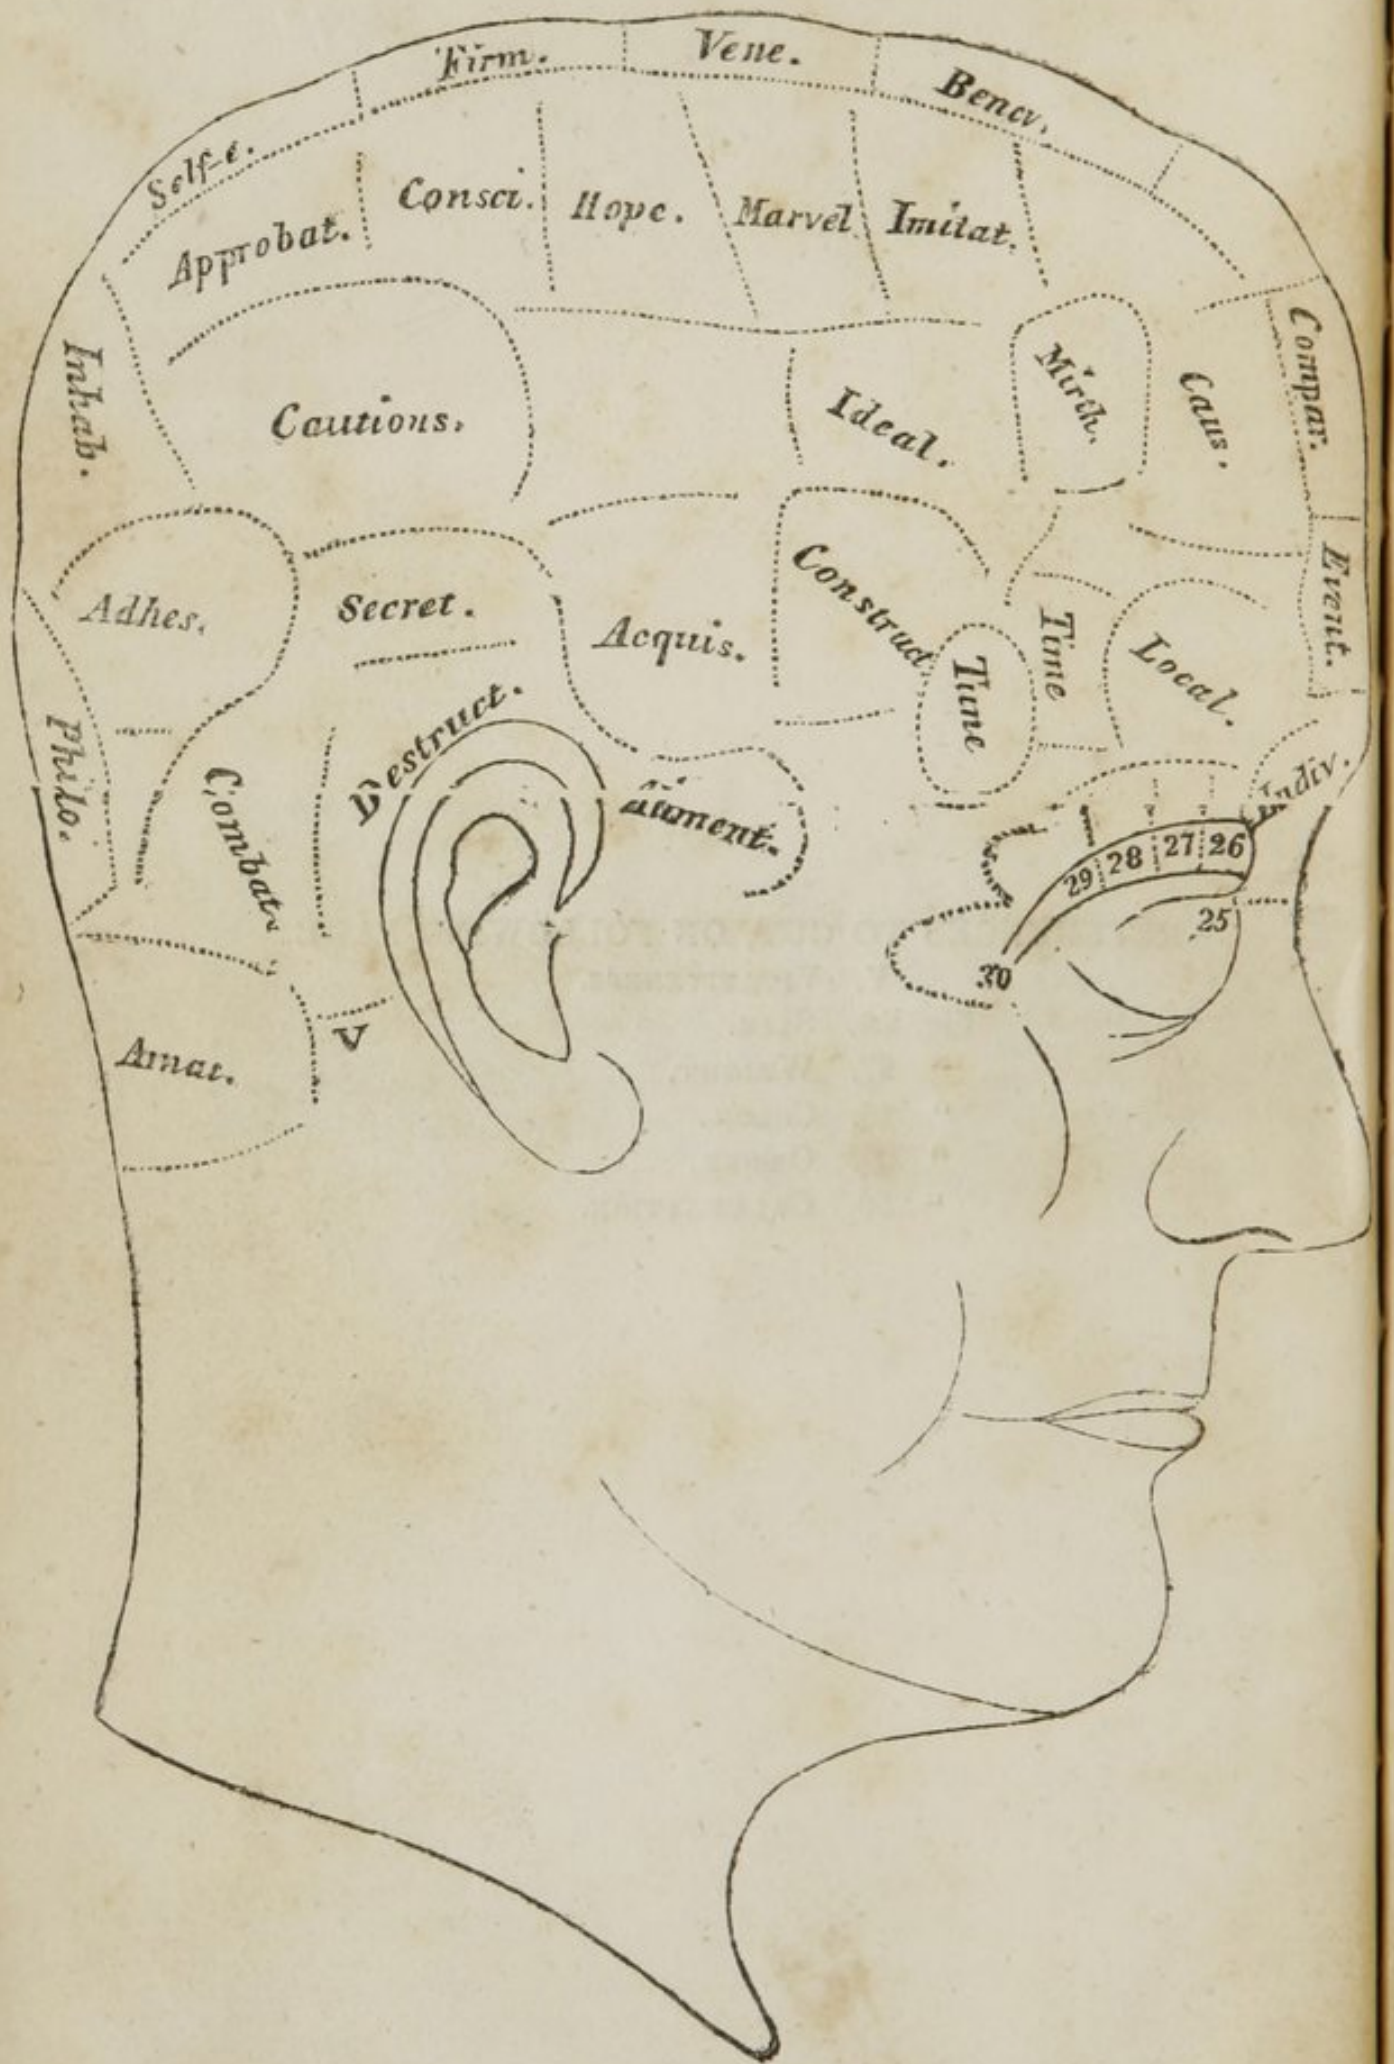 Firm.
Vene.
Benev.
Self-e.
Approbat.
Consci.
Hope.
Marvel.
Imitat.
Inhab.
Cautions.
Ideal.
Mirth.
Caus.
Compar.
Adhes.
Secret.
Acquis.
Construct
Tune
Time
Local.
Event.
Philo.
Combat.
Destruct.
Aliment.
Indiv.
29
28
27
26
25
30
Amat.
V